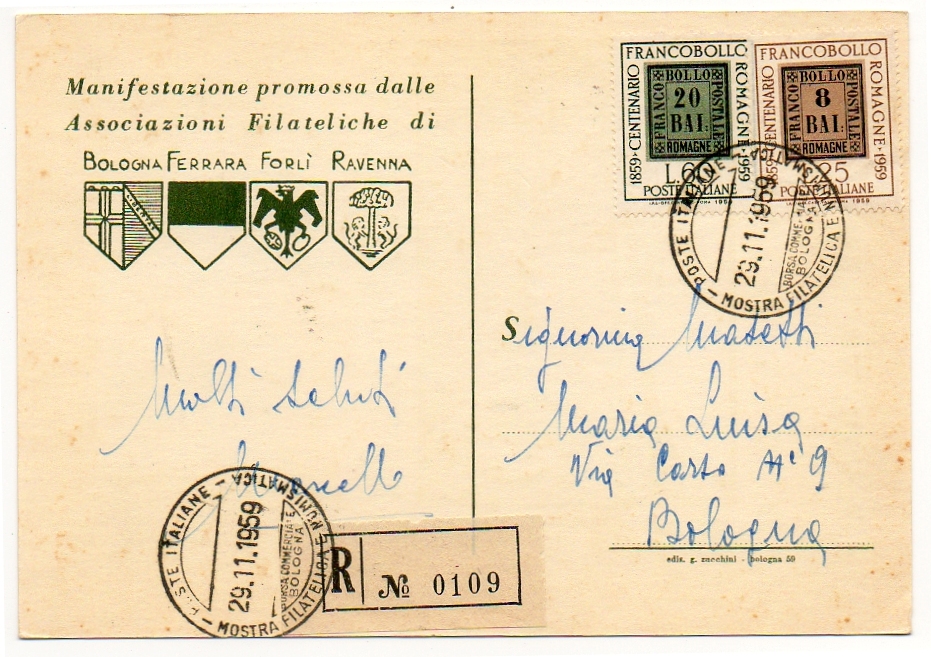 Manifestazione promossa dalle
Associazioni Filateliche di
BOLOGNA FERRARA FORLÌ RAVENNA
1859 · CENTENARIO FRANCOBOLLO ROMAGNE · 1959
FRANCO BOLLO POSTALE ROMAGNE
20
BAI.
POSTE ITALIANE
1859 · CENTENARIO FRANCOBOLLO ROMAGNE · 1959
FRANCO BOLLO POSTALE ROMAGNE
8
BAI.
25
POSTE ITALIANE
POSTE ITALIANE – MOSTRA FILATELICA E NUMISMATICA –
29.11.1959
BORSA COMMERCIALE
BOLOGNA
Signorina Masetti
Maria Luisa
Via 9
Bologna
ediz. g. zucchini - bologna 59
Molti saluti
Marcello
POSTE ITALIANE – MOSTRA FILATELICA E NUMISMATICA –
29.11.1959
BORSA COMMERCIALE
BOLOGNA
R № 0109